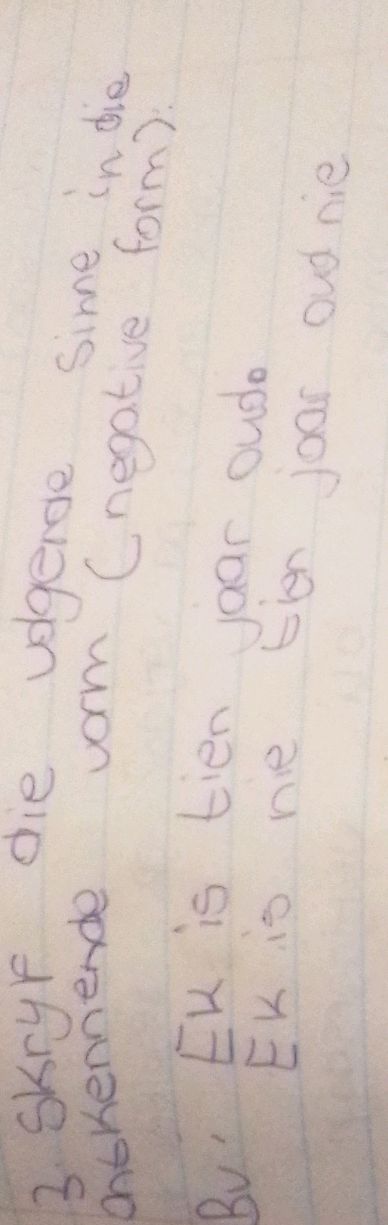 3 Skryf die volgende sinne in die
ontkennende vorm (negative form):
Bv. Ek is tien jaar oud.
Ek is nie tien jaar oud nie